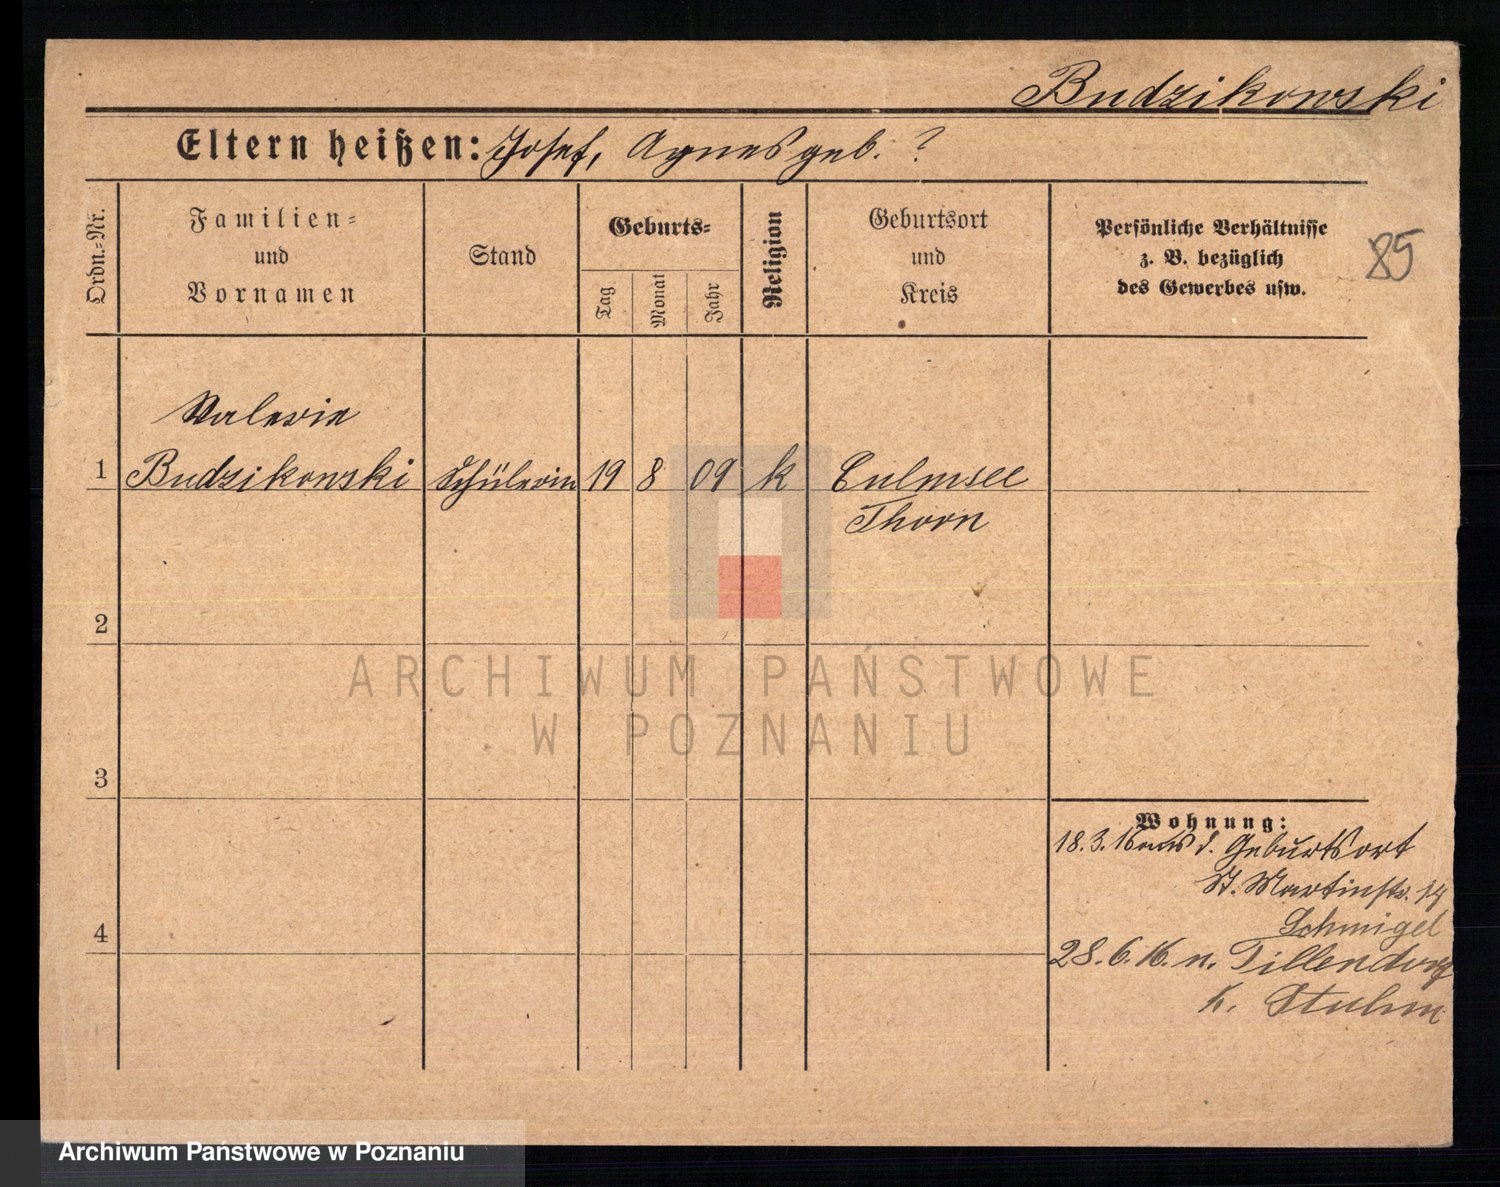 Budzikowski
Eltern heißen: Josef, Agnes geb. ?
Ordn.=Nr.
Familien=
und
Vornamen
Stand
Geburts=
Tag
Monat
Jahr
Religion
Geburtsort
und
Kreis
Persönliche Verhältnisse
z. B. bezüglich
des Gewerbes usw.
85
Valerie
1 Budzikowski Schülerin 19 8 09 k Culmsee
Thorn
2
3
4
Wohnung:
18.3.16 aus d. Geburtsort
St. Martinstr. 14
Schmigel
28.6.16. n. Tillendorf
K. Stuhm
ARCHIWUM PAŃSTWOWE
W POZNANIU
Archiwum Państwowe w Poznaniu